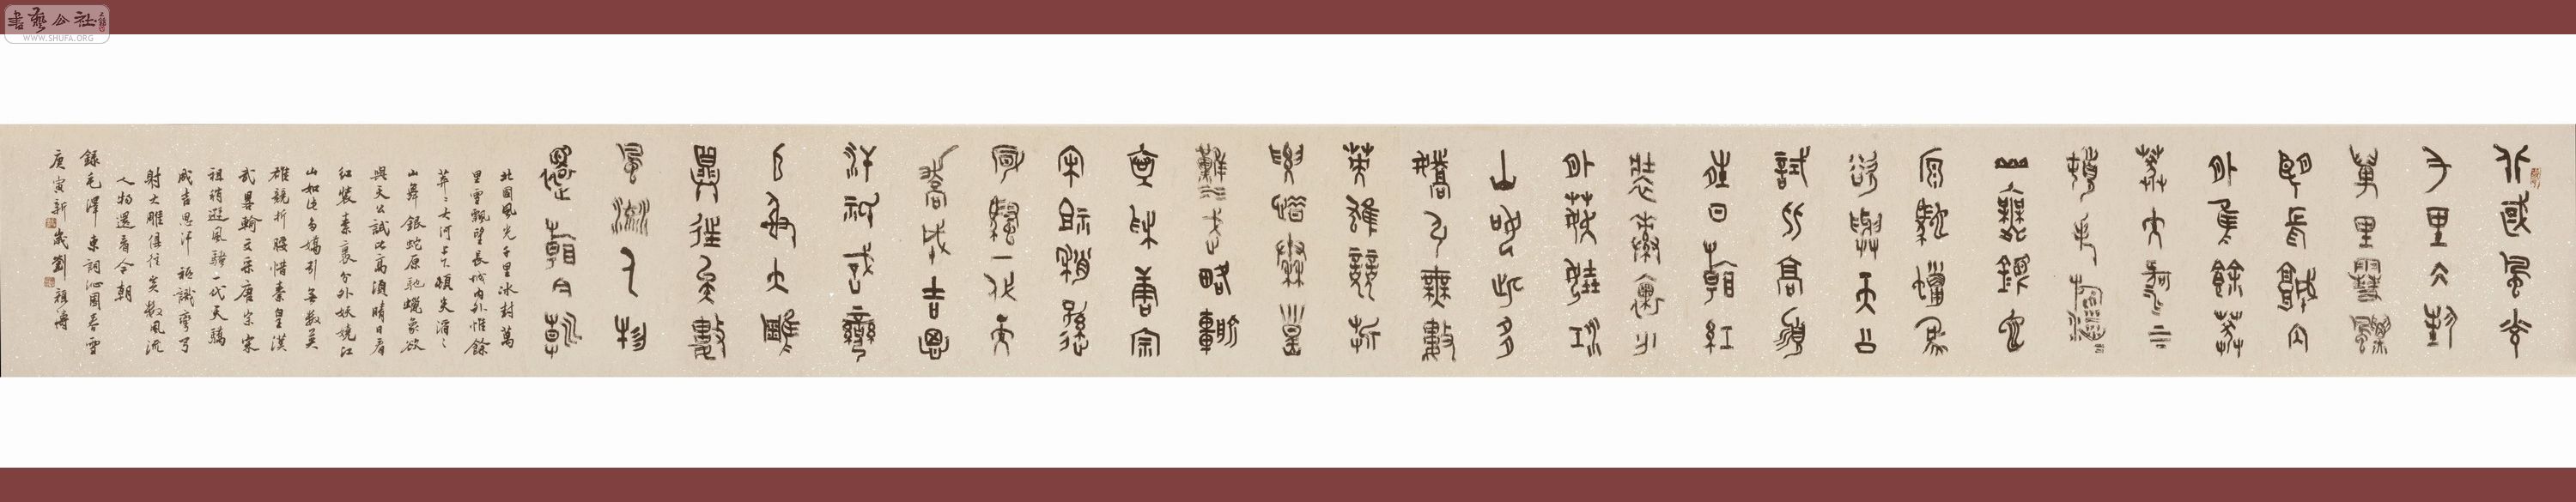 北國風光
千里冰封
萬里雪飄
望長城内
外惟餘莽
莽大河上下
頓失滔〻
山舞銀蛇
原馳蠟象
欲與天公
試比高須
晴日看紅
裝素裹分
外妖嬈江
山如此多
嬌引無數
英雄競折
腰惜秦皇
漢武略輸
文采唐宗
宋祖稍遜
風騷一代天
驕成吉思
汗祗識彎
弓射大雕
俱往矣數
風流人物
還看今朝
北國風光千里冰封萬
里雪飄望長城内外惟餘
莽〻大河上下頓失滔〻
山舞銀蛇原馳蠟象欲
與天公試比高須晴日看
紅裝素裹分外妖嬈江
山如此多嬌引無數英
雄競折腰惜秦皇漢
武略輸文采唐宗宋
祖稍遜風騷一代天驕
成吉思汗祗識彎弓
射大雕俱往矣數風流
人物還看今朝
錄毛澤東詞沁園春雪
庚寅新歲劉祖
書藝公社
WWW.SHUFA.ORG